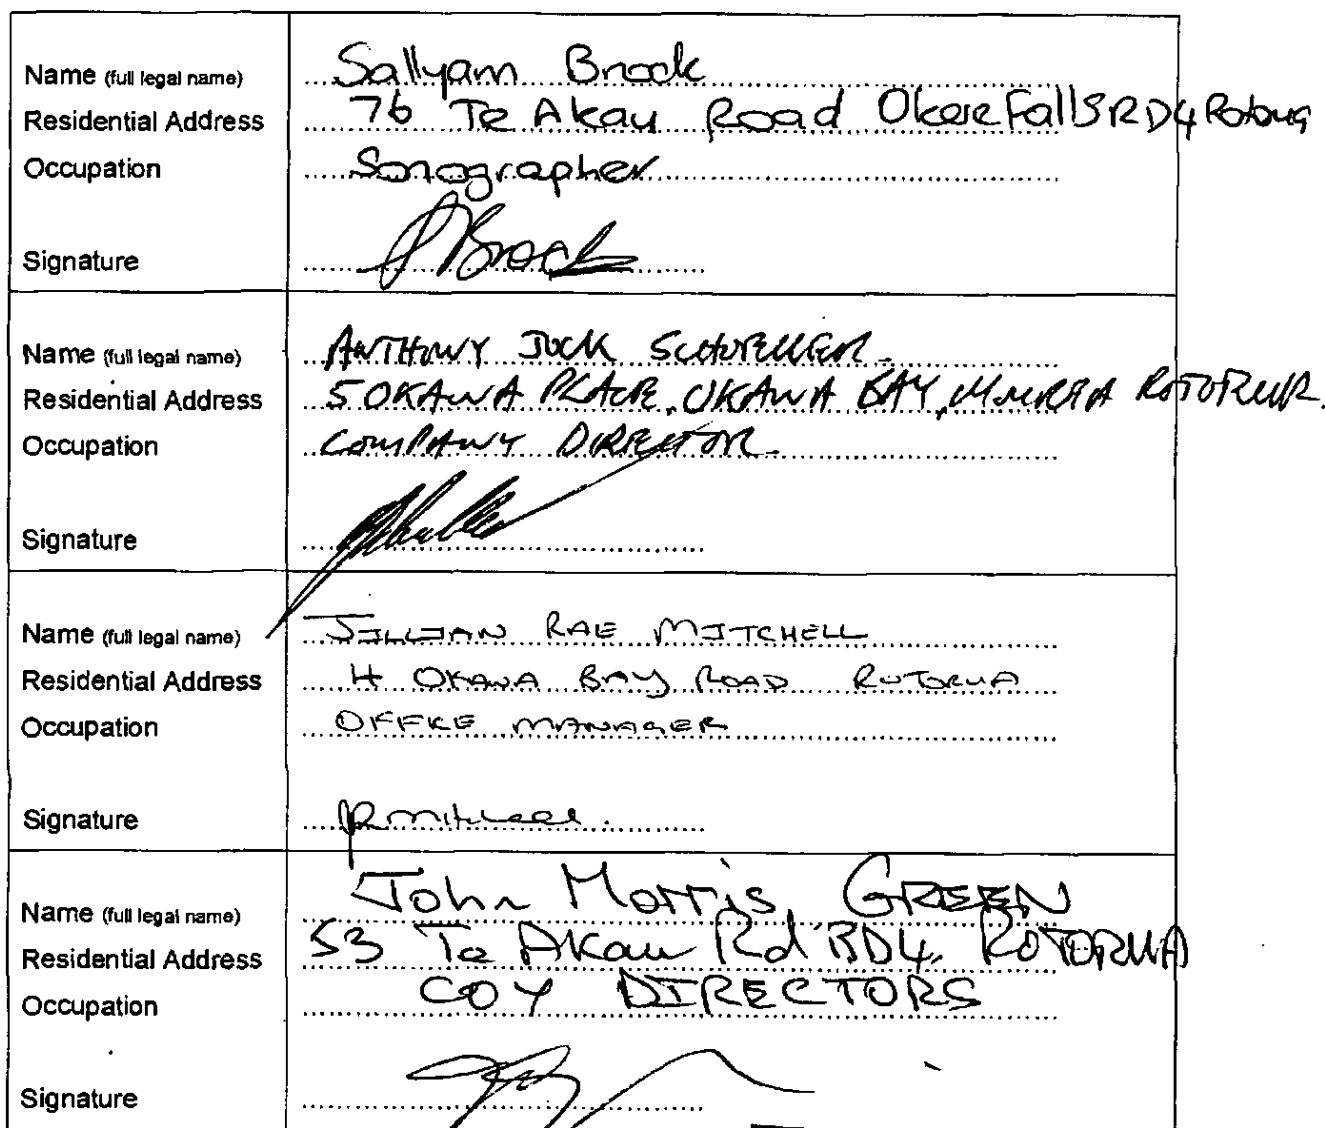 Name (full legal name) Sallyam Brock
Residential Address 76 Te Akau Road Okere Falls RD4 Rotorua
Occupation Sonographer
Signature Brock
Name (full legal name) ANTHONY JOCK
Residential Address 5 OKAWA PLACE, OKAWA BAY, ROTORUA.
Occupation COMPANY DIRECTOR.
Signature
Name (full legal name) JILLIAN RAE MITCHELL
Residential Address 4 OKAWA BAY ROAD ROTORUA
Occupation OFFICE MANAGER
Signature JRMitchell
Name (full legal name) John Morris GREEN
Residential Address 53 Te Akau Rd RD4, ROTORUA
Occupation COY DIRECTORS
Signature